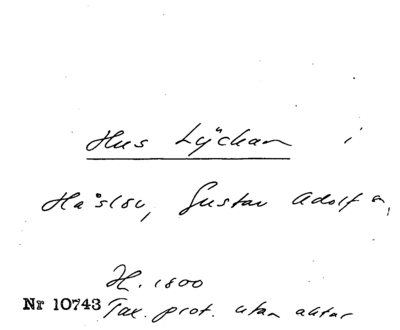 Hus Lyckan i
Haslöv, Gustav Adolf a,
H. 1800
Nr 10743 Tax. prot. utan aktar